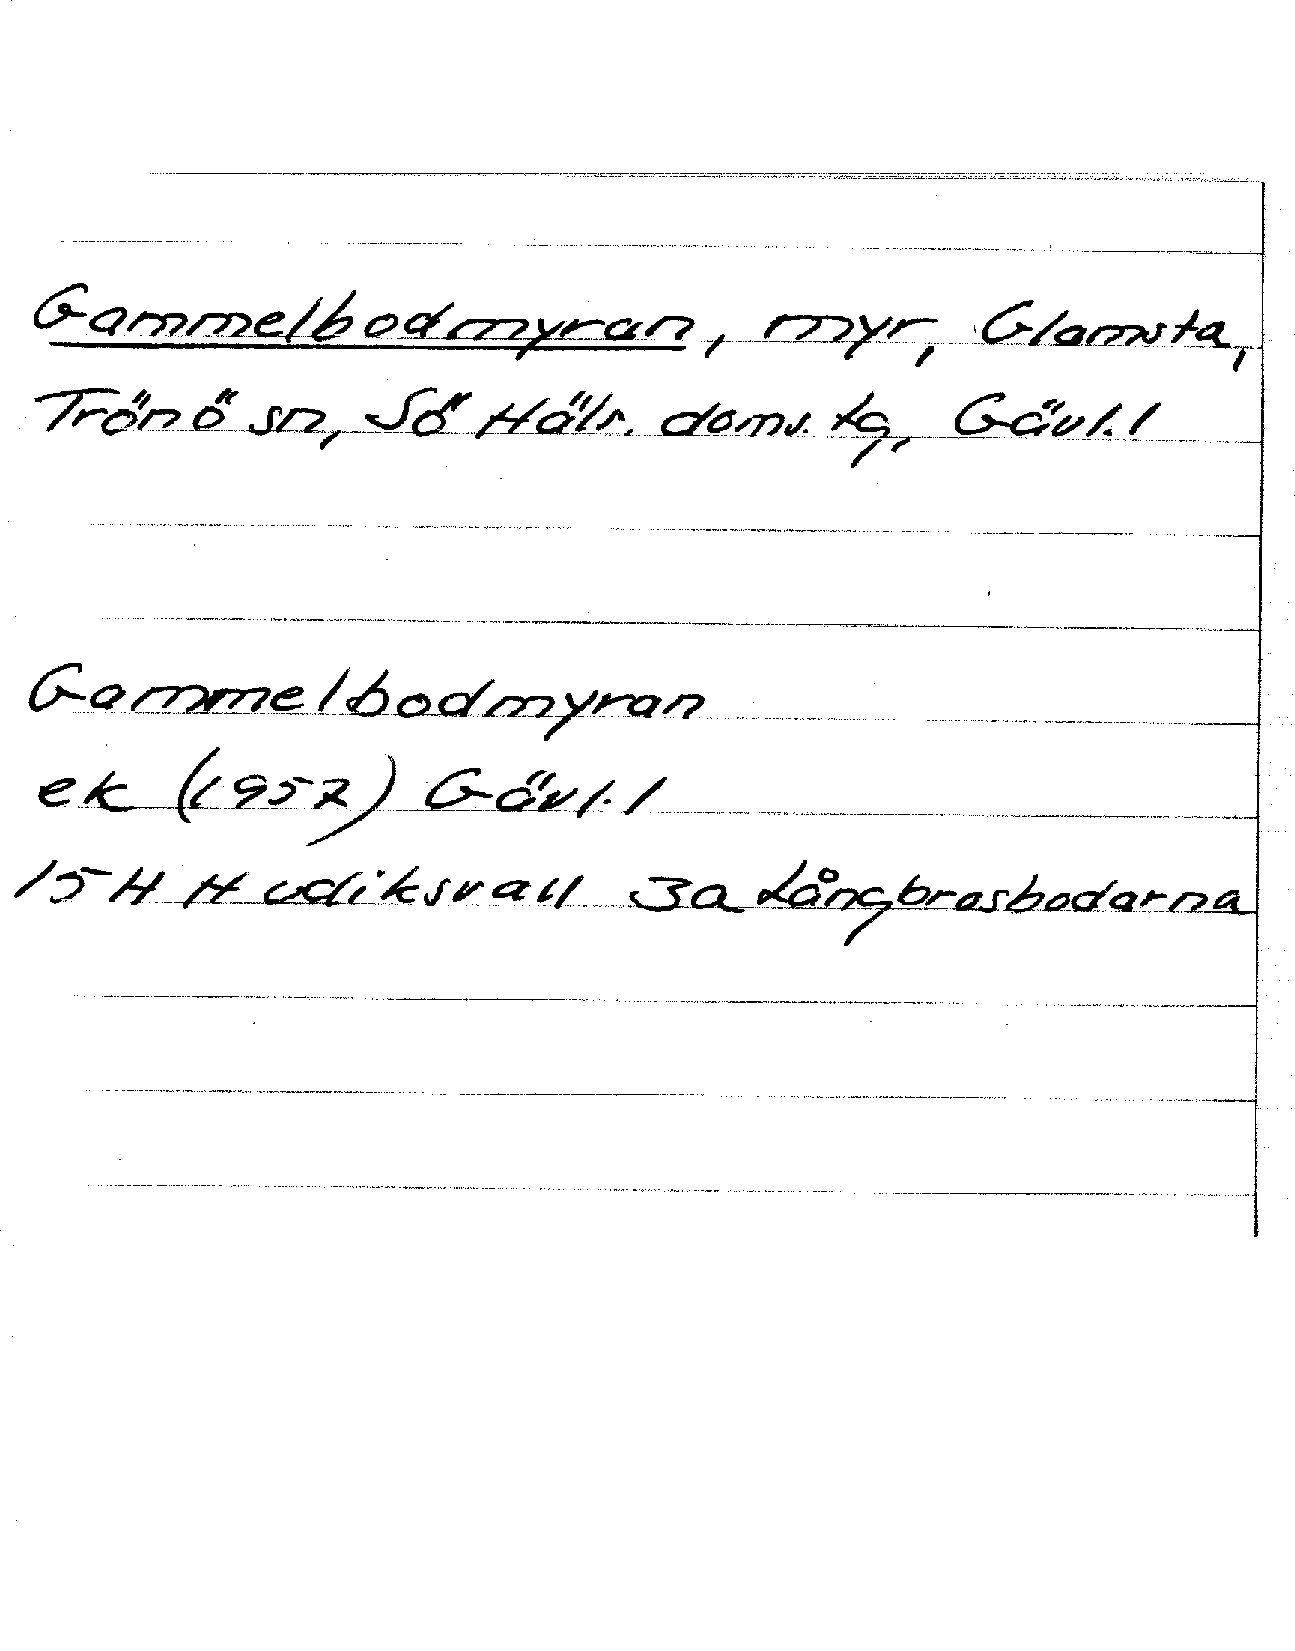 Gammelbodmyran, myr, Glamsta,
Trönö sn, Sö Häls. doms. tg, Gävl. l
Gammelbodmyran
ek (1957) Gävl. l
15 H Hudiksvall 3a Långbrosbodarna